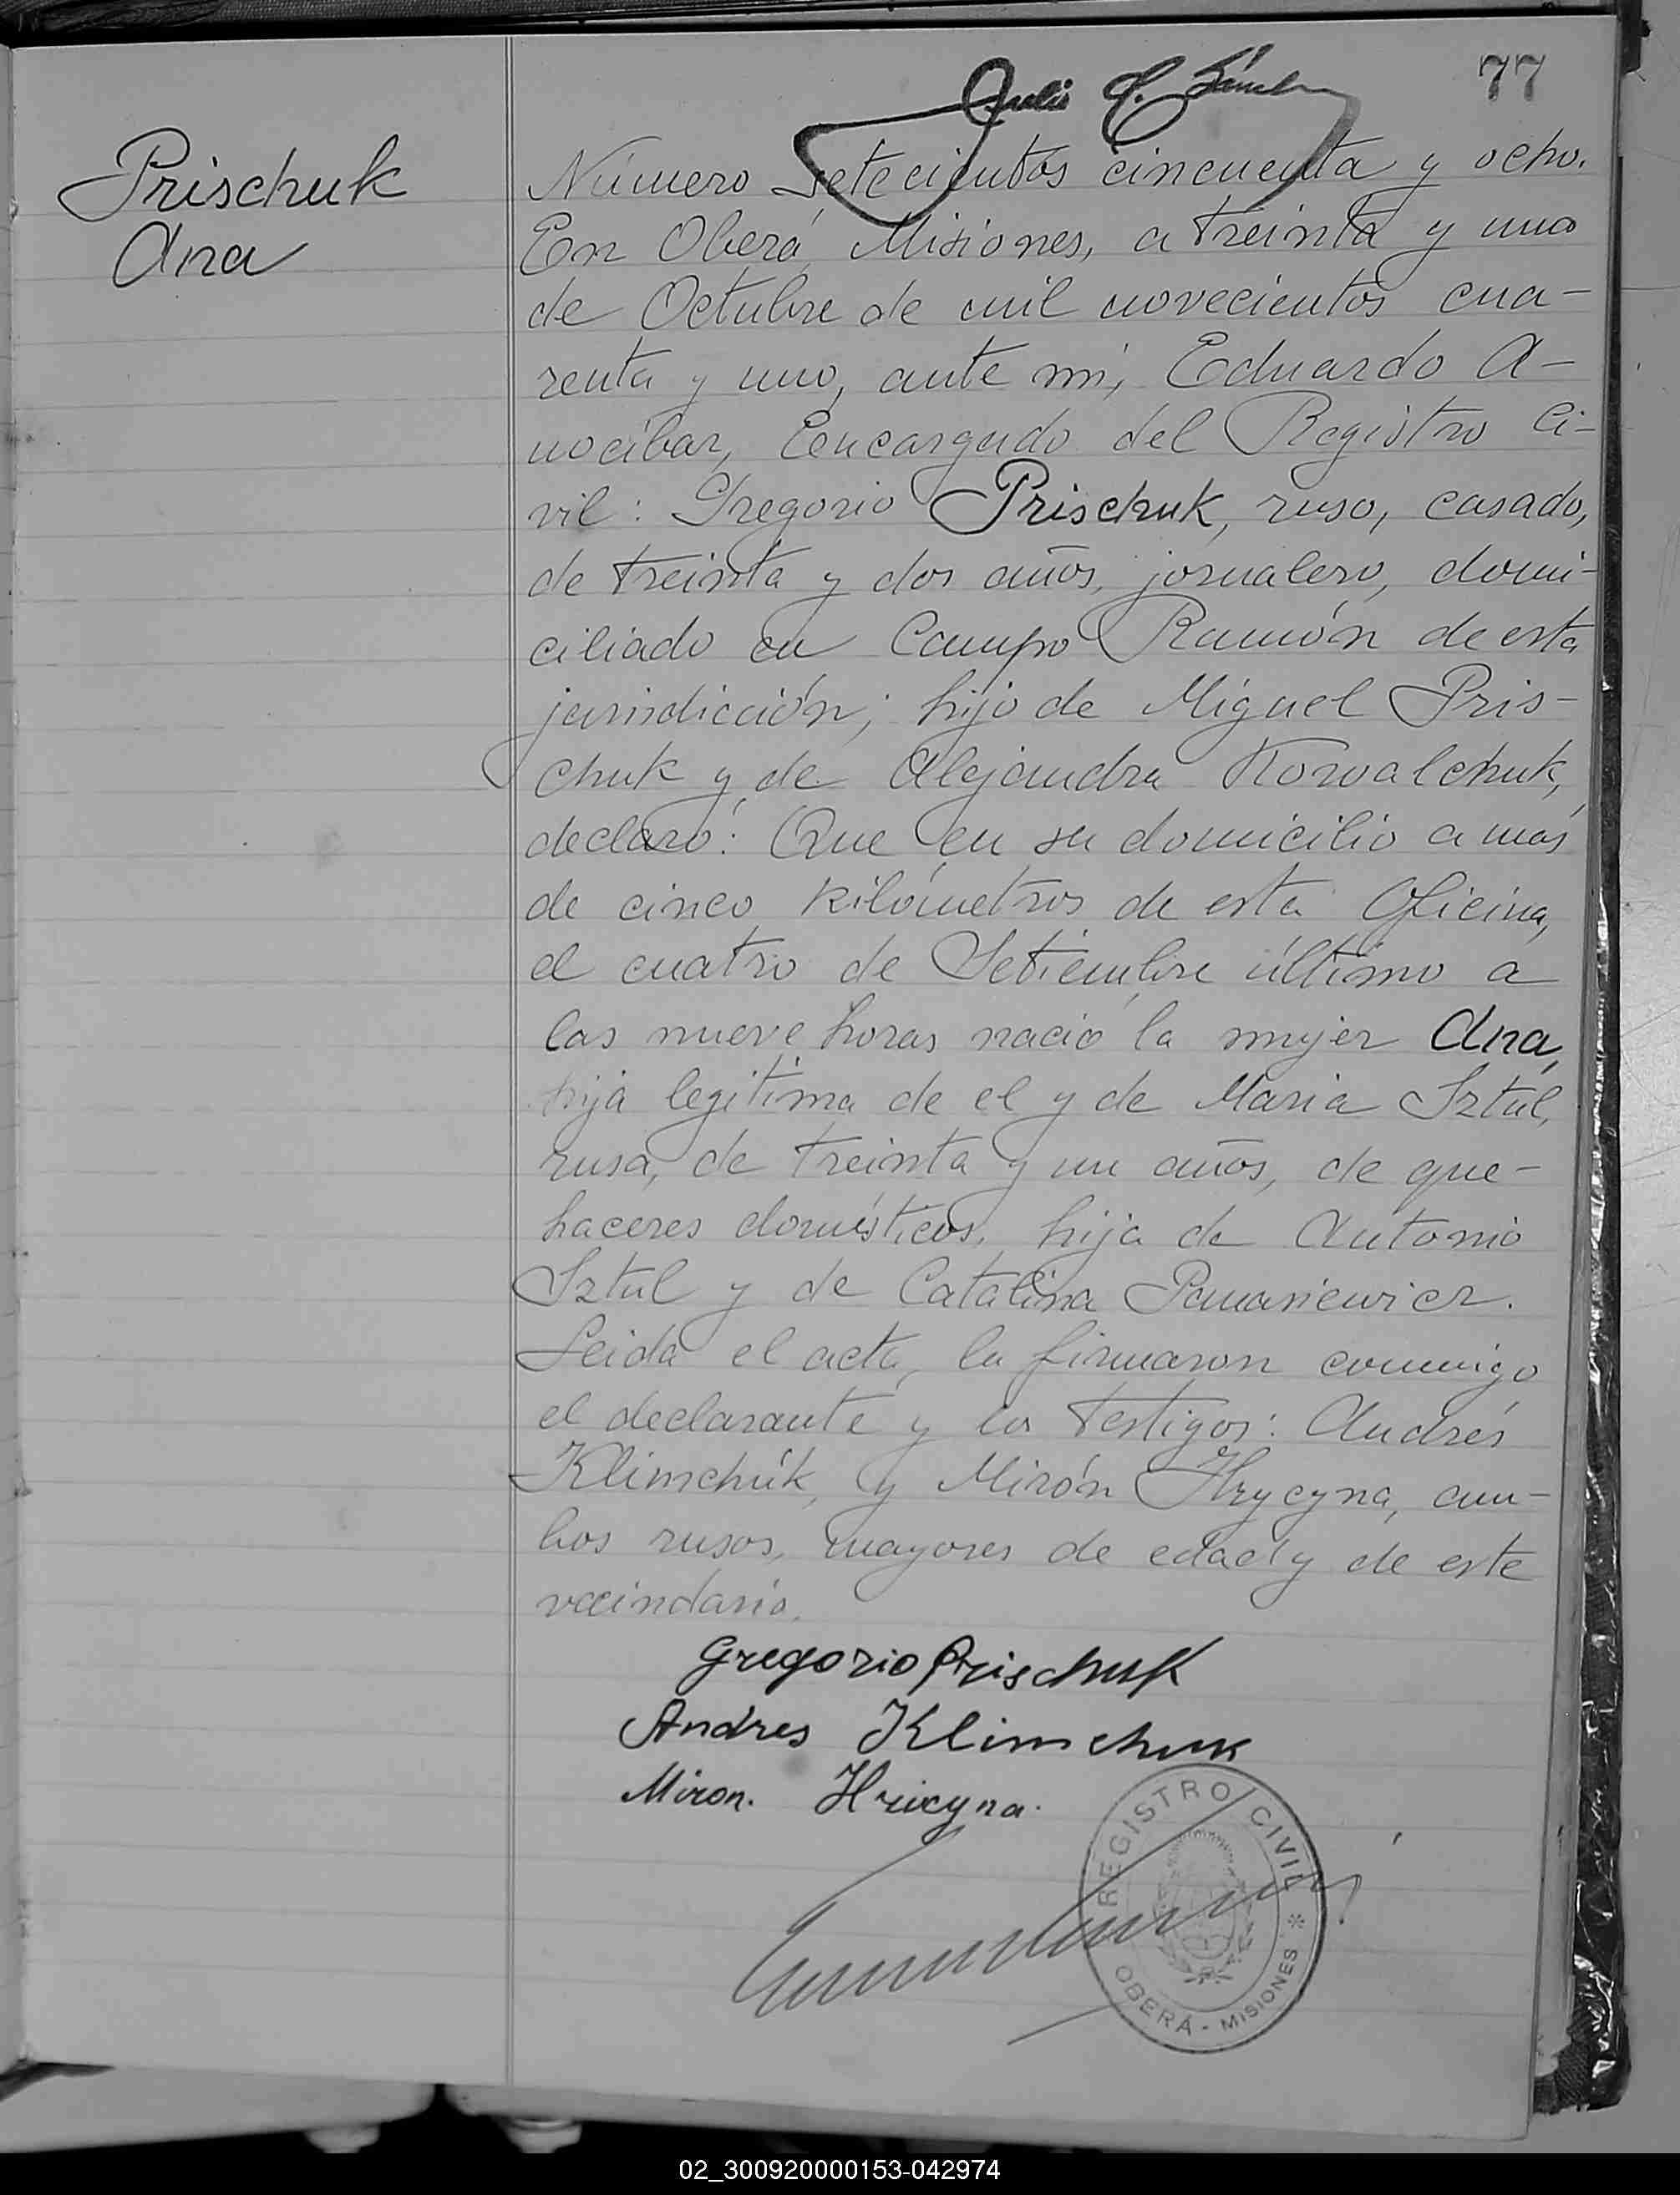 77
Julio A. Sánchez
Prischuk
Ana
Número setecientos cincuenta y ocho.
En Oberá, Misiones, a treinta y uno
de Octubre de mil novecientos cua-
renta y uno, ante mí, Eduardo A-
nocíbar, Encargado del Registro Ci-
vil: Gregorio Prischuk, ruso, casado,
de treinta y dos años, jornalero, domi-
ciliado en Campo Ramón de esta
jurisdicción; hijo de Miguel Pris-
chuk y de Alejandra Kowalchuk,
declaró: Que en su domicilio a más
de cinco kilómetros de esta Oficina,
el cuatro de Setiembre último a
las nueve horas nació la mujer Ana,
hija legítima de el y de Maria Sztul,
rusa, de treinta y un años, de que-
haceres domésticos, hija de Antonio
Sztul y de Catalina Panasiewicz.
Leida el acta, la firmaron conmigo
el declarante y los testigos: Andrés
Klimchúk, y Mirón Hrycyna, am-
bos rusos, mayores de edad y de este
vecindario.
Gregorio Prischuk
Andres Klimchuk
Miron. Hricyna.
REGISTRO CIVIL
OBERÁ - MISIONES *
02_300920000153-042974